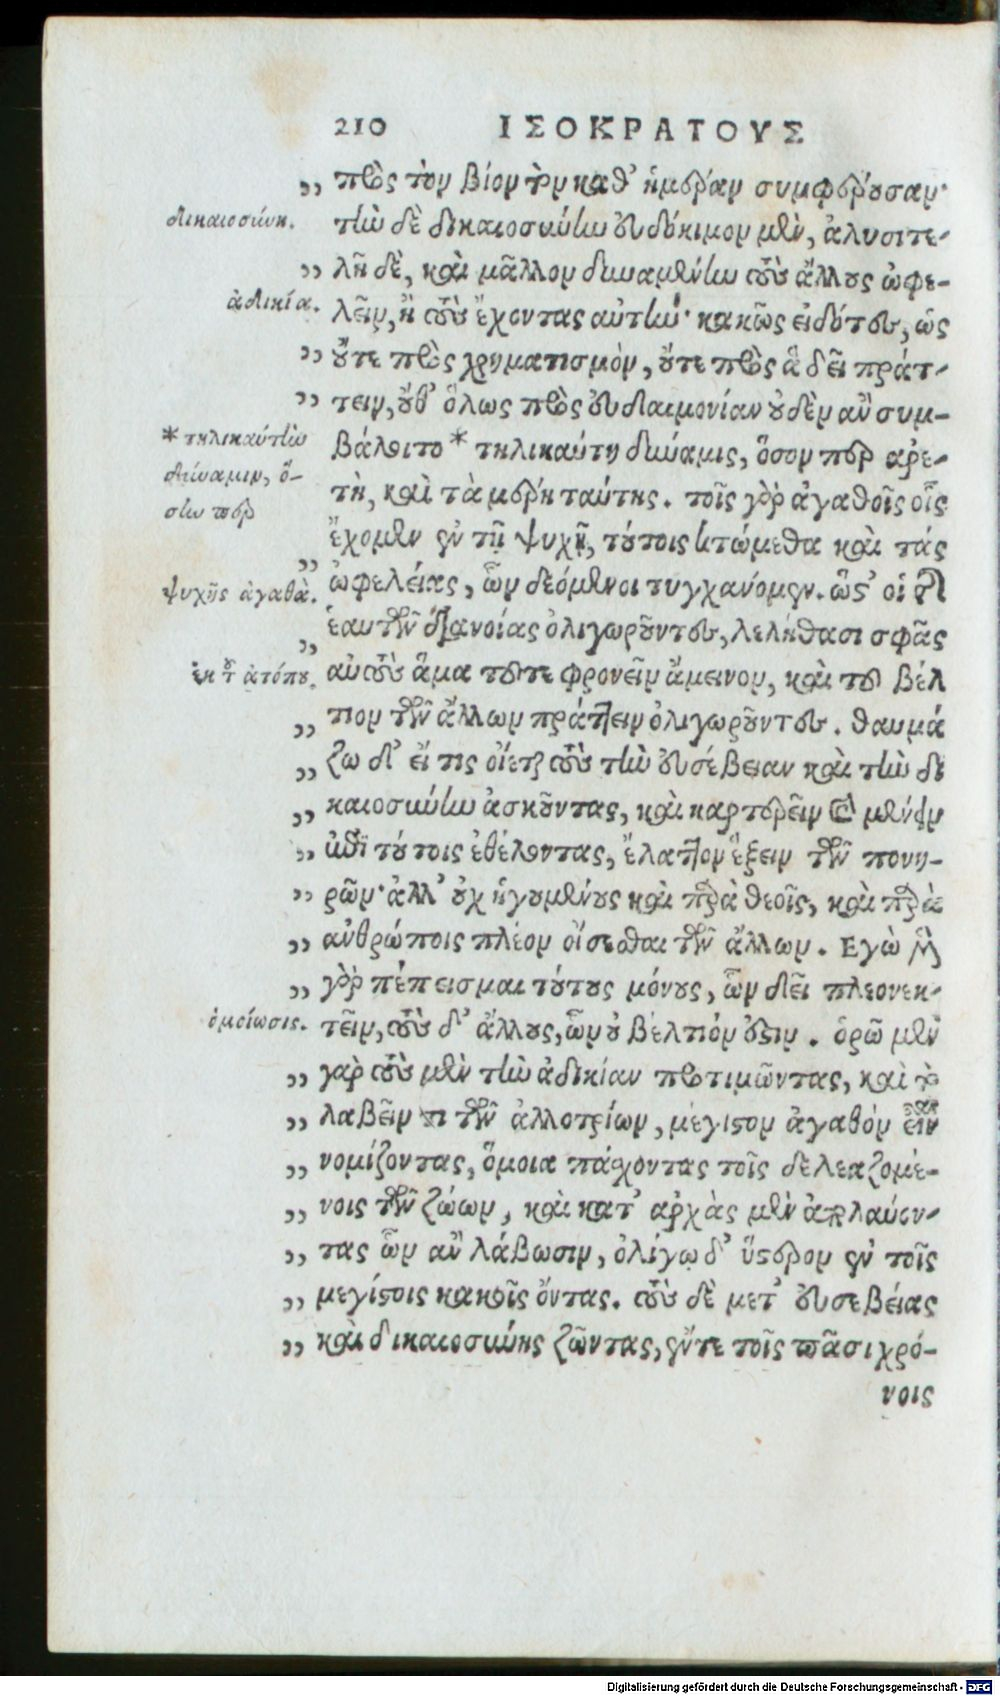 210 ΙΣΟΚΡΑΤΟΥΣ
„ πρὸς τὸν βίον τὸν καθ' ἡμέραν συμφέρουσαν·
δικαιοσύνη.
τὴν δὲ δικαιοσύνην εὐδόκιμον μὲν, ἀλυσιτε-
„ λῆ δὲ, καὶ μᾶλλον δυναμένην τοὺς ἄλλους ὠφε-
ἀδικία.
λεῖν, ἢ τοὺς ἔχοντας αὐτήν· κακῶς εἰδότες, ὡς
„ οὔτε πρὸς χρηματισμὸν, οὔτε πρὸς ἃ δεῖ πράτ-
„ τειν, οὔθ' ὅλως πρὸς εὐδαιμονίαν οὐδὲν ἂν συμ-
* τηλικαύτην
δύναμιν, ὅ-
σην περ
βάλοιτο * τηλικαύτη δύναμις, ὅσον περ ἀρε-
τὴ, καὶ τὰ μέρη ταύτης. τοῖς γὰρ ἀγαθοῖς οἷς
ἔχομεν ἐν τῇ ψυχῇ, τούτοις κτώμεθα καὶ τάς
„ ὠφελείας, ὧν δεόμενοι τυγχάνομεν. ὥστ' οἱ τῆς
ψυχῆς ἀγαθὰ.
„ ἑαυτῶν διανοίας ὀλιγωροῦντες, λελήθασι σφᾶς
αὐτοὺς ἅμα τοῦτε φρονεῖν ἄμεινον, καὶ τοῦ βέλ
ἐκ τοῦ ἀτόπου.
„ τιον τῶν ἄλλων πράττειν ὀλιγωροῦντες. θαυμά
„ ζω δ' εἴ τις οἴεται τοὺς τὴν εὐσέβειαν καὶ τὴν δι
„ καιοσύνην ἀσκοῦντας, καὶ καρτερεῖν καὶ μένειν
„ ἐπὶ τούτοις ἐθέλοντας, ἔλαττον ἕξειν τῶν πονη-
„ ρῶν· ἀλλ' οὐχ ἡγουμένους καὶ παρὰ θεοῖς, καὶ παρὰ
„ ἀνθρώποις πλέον οἴσεσθαι τῶν ἄλλων. Εγὼ μὲν
„ γὰρ πέπεισμαι τούτους μόνους, ὧν δεῖ πλεονεκ-
ὁμοίωσις.
τεῖν, τοὺς δ' ἄλλους, ὧν οὐ βέλτιόν ἐστιν. ὁρῶ μὲν
„ γὰρ τοὺς μὲν τὴν ἀδικίαν προτιμῶντας, καὶ τὸ
„ λαβεῖν τι τῶν ἀλλοτρίων, μέγιστον ἀγαθόν εἶναι
„ νομίζοντας, ὅμοια πάσχοντας τοῖς δελεαζομέ-
„ νοις τῶν ζώων, καὶ κατ' ἀρχὰς μὲν ἀπολαύον-
„ τας ὧν ἂν λάβωσιν, ὀλίγῳ δ' ὕστερον ἐν τοῖς
„ μεγίστοις κακοῖς ὄντας. τοὺς δὲ μετ' εὐσεβείας
„ καὶ δικαιοσύνης ζῶντας, ἔν τε τοῖς πᾶσι χρό-
νοις
Digitalisierung gefördert durch die Deutsche Forschungsgemeinschaft - DFG